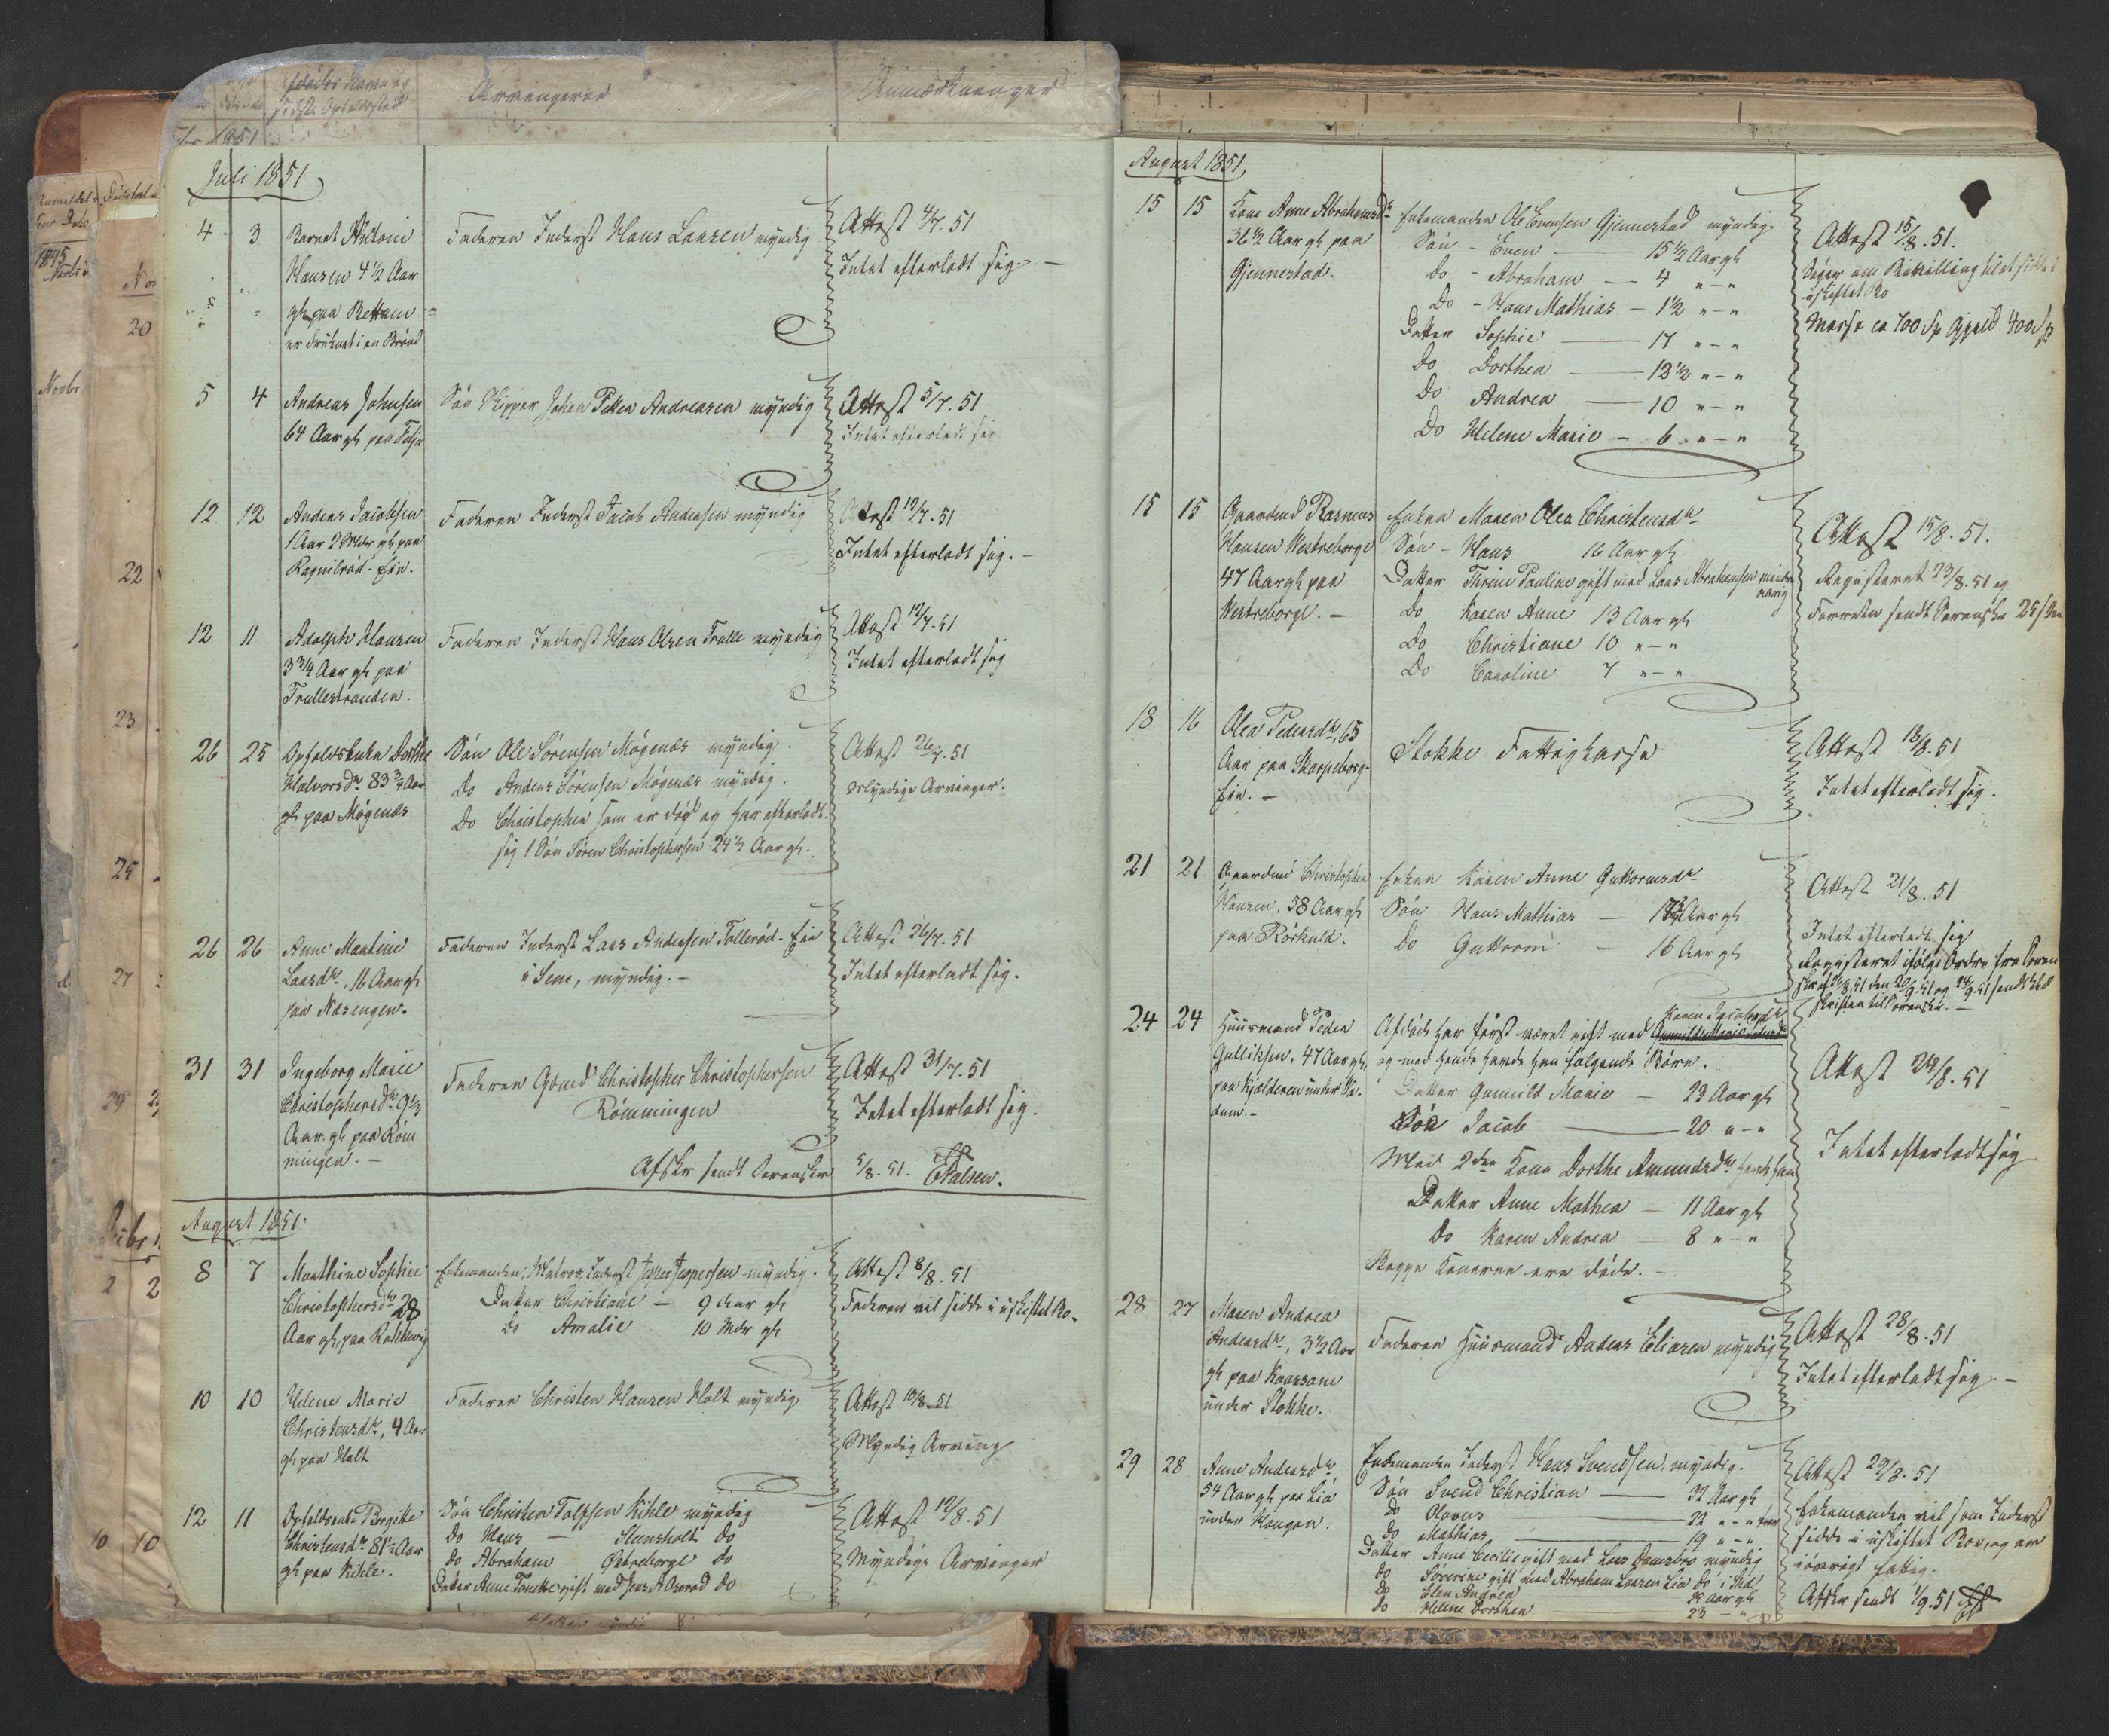 Afdødes Navn og
sidste Opholdssted
Arvingerne
Anmærkninger
Juli 1851
4 3 Barnet Antoni
Hansen 4½ Aar
gl. paa Rettam
er druknet i en Brönd
Faderen Inderst Hans Larsen myndig
Attest 4/7. 51
Intet efterladt sig. -
5 4 Andreas Johnsen
64 Aar gl. paa
Sön Skipper Johan Petter Andreasen myndig
Attest 5/7. 51
Intet efterladt sig
12 12 Anders Jacobsen
1 Aar 2 Mdr gl paa
Ragnilröd. Eie.
Faderen Inderst Jacob Andersen myndig
Attest 12/7. 51
Intet efterladt sig. -
12 11 Adolph Hansen
3¾ Aar gl paa
Trullestranden.
Faderen Inderst Hans Olsen Trulle myndig
Attest 12/7. 51
Intet efterladt sig
26 25 Opholdsenke Dorthe
Halvorsdr 83¾ Aar
gl. paa Mögenæs
Sön Ole Sörensen Mögenæs myndig.
Do Anders Sörensen Mögenæs myndig.
Do Christopher som er död og har efterladt
sig 1 Sön Sören Christophersen 24½ Aar gl.
Attest 26/7. 51
Myndige Arvinger.
26 26 Anne Martine
Larsdr, 16 Aar gl
paa Næsengen.
Faderen Inderst Lars Andersen Tolleröd. Eie
i Sem, myndig. -
Attest 26/7. 51
Intet efterladt sig.
31 31 Ingeborg Marie
Christophersdr 9⅓
Aar gl paa Röm
mingen. -
Faderen Gmd Christopher Christophersen
Römmingen
Attest 31/7. 51
Intet efterladt sig.
Afskr sendt Sorenskr 5/8. 51. Falsen.
August 1851.
8 7 Marthine Sophie
Christophersdr 28
Aar gl, paa
Enkemanden, Matros, Inderst Jesper Jespersen myndig.
Datter Christiane - 9 Aar gl
Do Amalie 10 Mdr gl
Attest 8/8. 51
Faderen vil sidde i uskiftet Bo.
10 10 Helene Marie
Christensdr, 4 Aar
gl paa Holt
Faderen Christen Hansen Holt myndig
Attest 10/8. 51
Myndig Arving
12 11 Opholdsenke Birgitte
Christensdr 81½ Aar
gl paa Kihle.
Sön Christen Tolfsen Kihle myndig
Do Hans - Steensholt Do
Do Abraham Östreborge do
Datter Anne Tonette gift med Jens A Do
Attest 12/8. 51
Myndige Arvinger
August 1851.
15 15 Kone Anne Abrahamsdr
36½ Aar gl paa
Gjennestad.
Enkemanden Ole Evensen Gjennestad myndig
Sön - Even - 15½ Aar gl
Do - Abraham - 4 " - "
Do - Hans Mathias - 1½ " - "
Datter Sophie - 17 " - "
Do Dorthea - 12½ " - "
Do Andrea - 10 " - "
Do Helene Marie - 6 " - "
Attest 15/8. 51.
Söger om Bevilling til at sidde i
uskiftet Bo
Masse ca 700 Sp Gjeld 400 Sp
15 15 Gaardmd Rasmus
Hansen Westreborge
47 Aar gl paa
Westreborge. -
Enken Maren Olea Christensdr
Sön - Hans 16 Aar gl
Datter Thrine Pauline gift med Lars Abrahamsen mindre
aarig
Do Karen Anne 13 Aar gl
Do Christiane 10 " - "
Do Caroline 7 " - "
Attest 15/8. 51.
Registeret 23/8. 51 og
Forretn sendt Sorenskr 25 s m
18 16 Olea Pedersdr, 65
Aar paa Skarpeborg-
Eie. -
Stokke Fattigkasse
Attest 18/8. 51
Intet efterladt sig.
21 21 Gaardmd Christopher
Hansen, 58 Aar gl
paa Rörkuld.
Enken Karen Anne Guttormsdr
Sön Hans Mathias - Aar gl
Do Guttorm - 16 Aar gl
Attest 21/8. 51
Intet efterladt sig
Registeret ifölge Ordre fra Soren
skr af 8.51 den 20/9. 51 og 24/9. 51 sendt
skriften til Sorenskr. -
24 24 Huusmand Peder
Gulliksen, 47 Aar gl,
paa Kjelderen under
Karen Jacobsdr
Afdöde har först været gift med
og med hende havde han fölgende Börn.
Datter Gunnild Marie - 23 Aar gl
Sön Jacob - 20 " - "
Med 2den Kone Dorthe Amundsdr havde han
Datter Anne Mathea - 11 Aar gl
Do Karen Andrea - 8 " - "
Begge Konerne ere döde. -
Attest 24/8. 51
Intet efterladt sig
28 27 Maren Andrea
Andersdr, 3½ Aar
gl paa Kaarsom
under Stokke.
Faderen Huusmand Anders Eliasen myndig
Attest 28/8. 51
Intet efterladt sig -
29 28 Anne Andersdr
54 Aar gl paa Lia
under Haugan.
Enkemanden Inderst Hans Svendsen, myndig.
Sön Svend Christian - 32 Aar gl
Do Olavus 22 " - "
Do Mathias - 19 " - "
Datter Anne Cecilie gift med Lars myndig
do Severine gift med Abraham Larsen Lia do i
do Elen Andrea Aar gl
do Helene Dorthea 23 - "
Attest 29/8. 51
Enkemanden vil som Inderst
sidde i uskiftet Bo, og er
iövrigt fattig.
Afskr sendt 1/9. 51